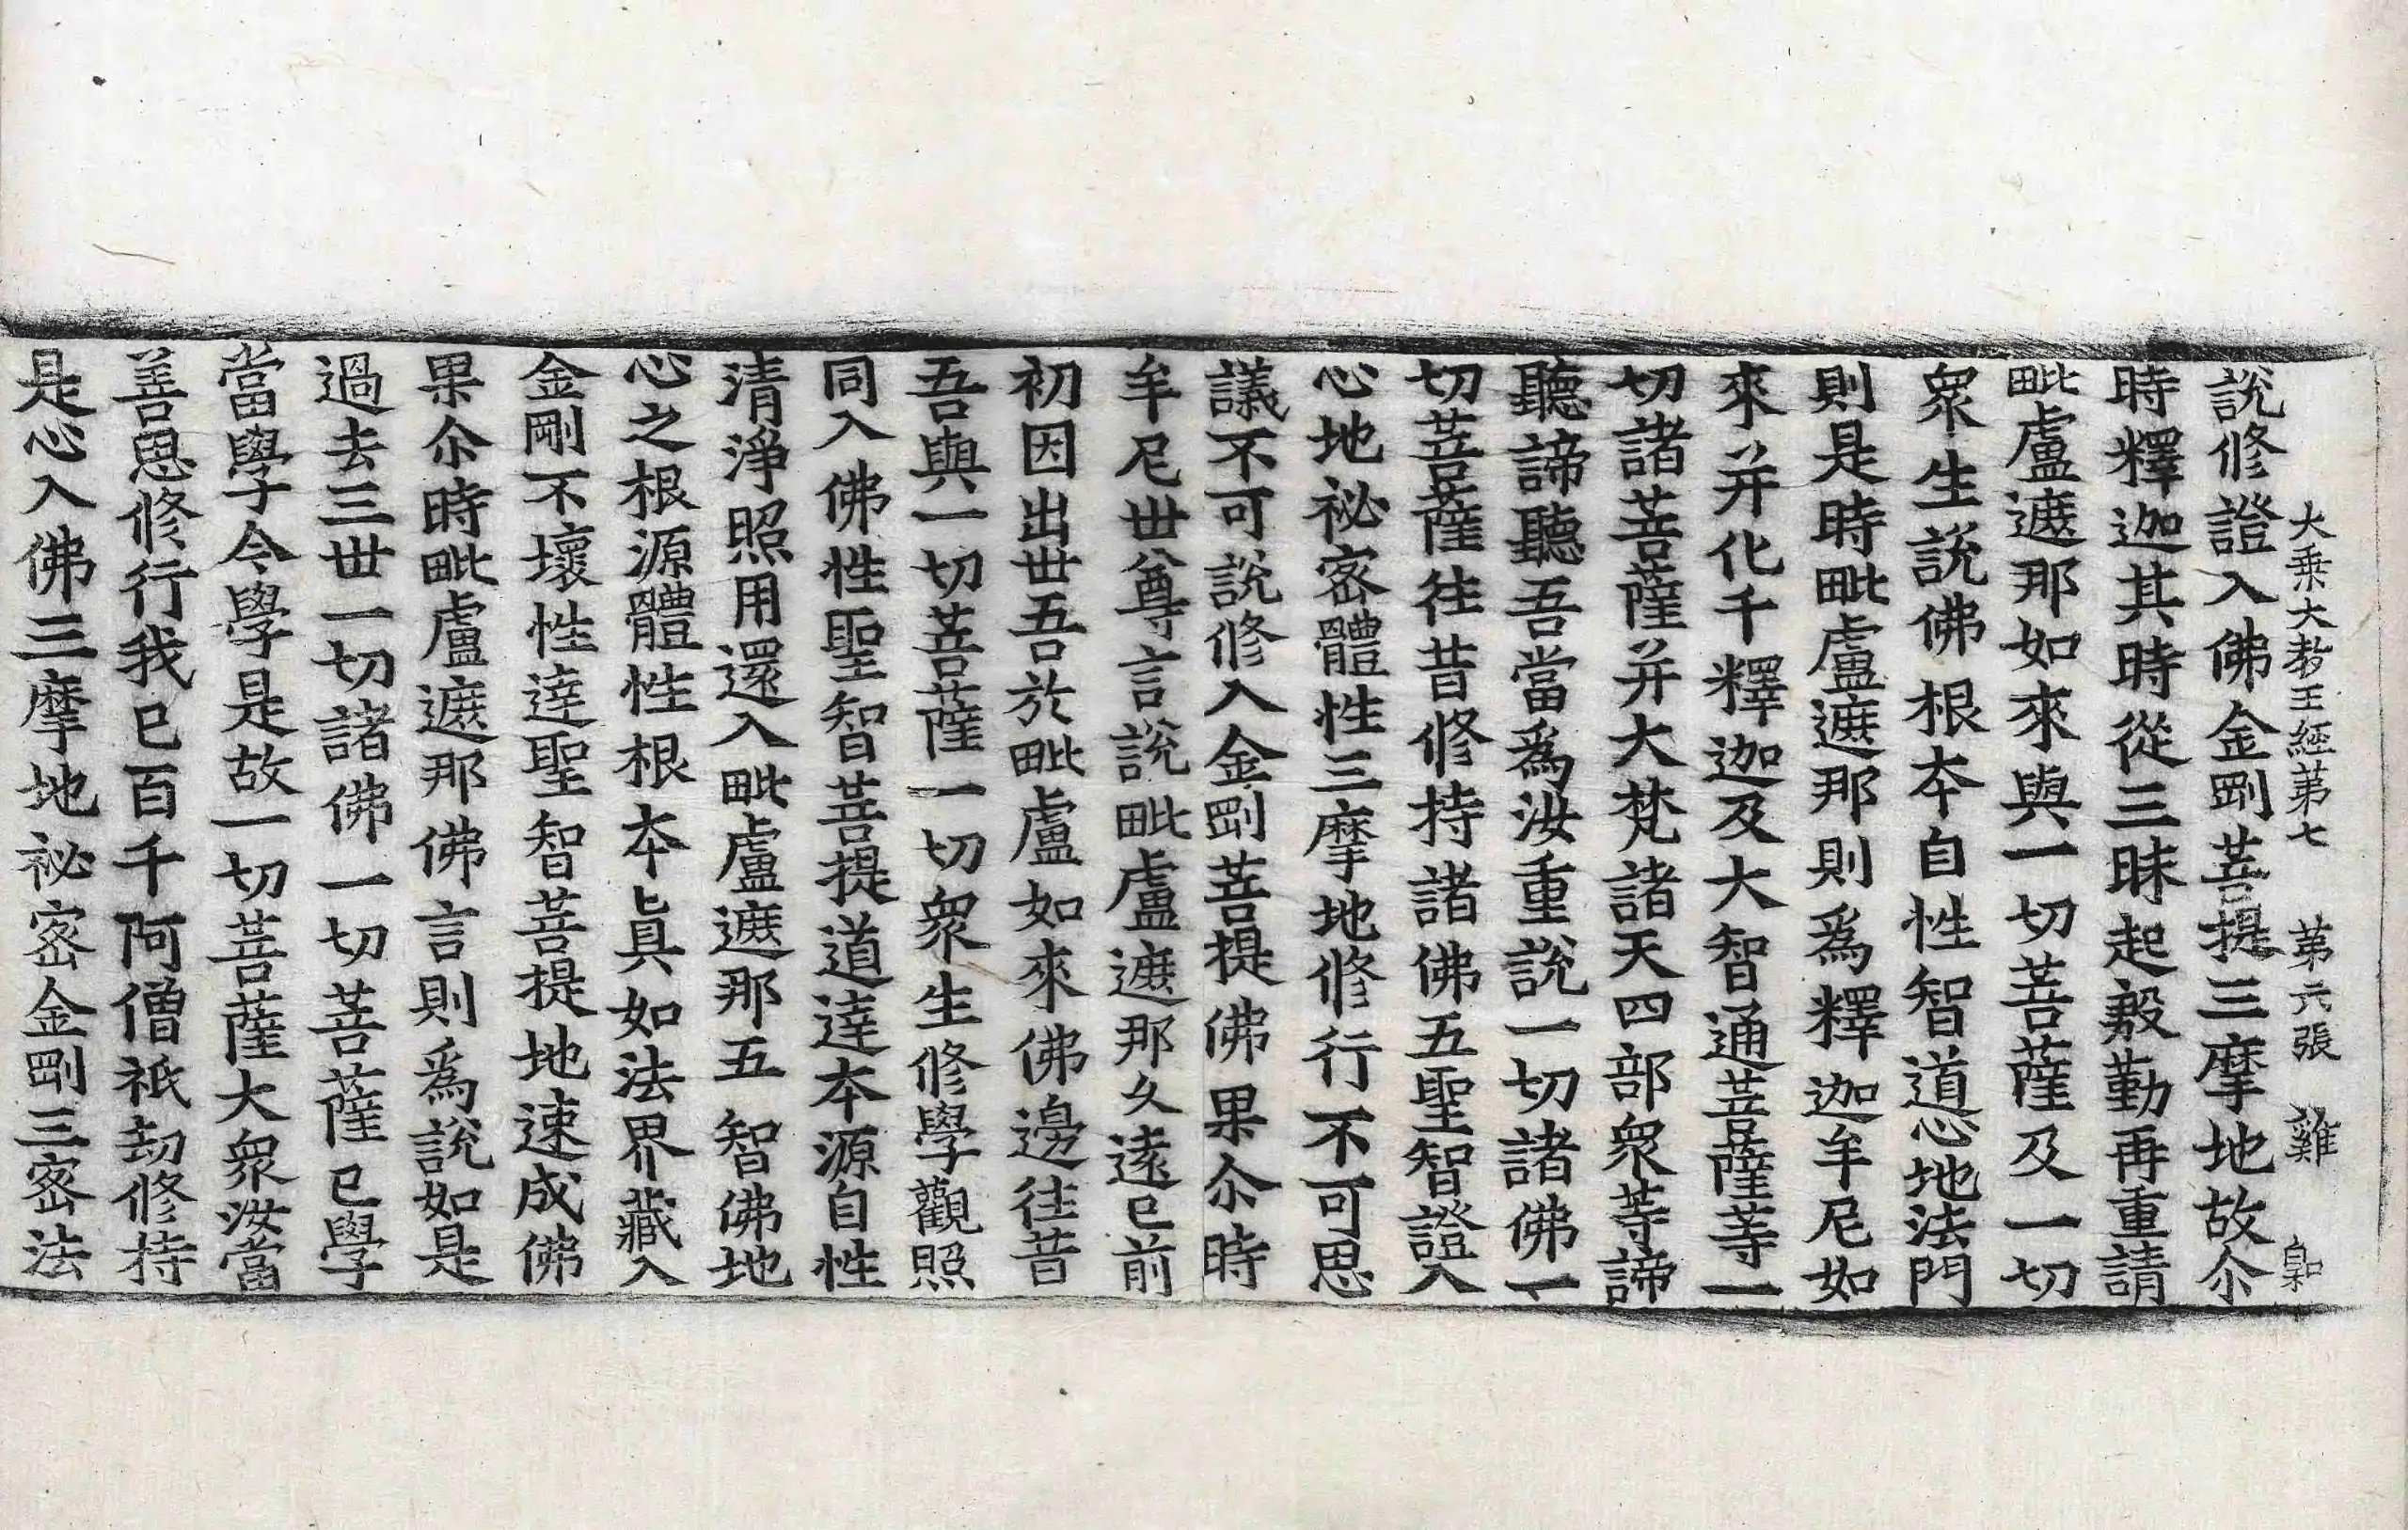 大乘大教王經第七　第六張　雞　皃和
說修證入佛金剛菩提三摩地故尒
時釋迦其時從三昧起慇勤再重請
毗盧遮那如來與一切菩薩及一切
衆生說佛根本自性智道心地法門
則是時毗盧遮那則爲釋迦牟尼如
來并化千釋迦及大智通菩薩等一
切諸菩薩并大梵諸天四部衆等諦
聽諦聽吾當爲汝重說一切諸佛一
切菩薩往昔修持諸佛五聖智證入
心地祕密體性三摩地修行不可思
議不可說修入金剛菩提佛果尒時
牟尼世尊言說毗盧遮那久遠已前
初因出世吾於毗盧如來佛邊往昔
吾與一切菩薩一切衆生修學觀照
同入佛性聖智菩提道達本源自性
清淨照用還入毗盧遮那五智佛地
心之根源體性根本眞如法界藏入
金剛不壞性達聖智菩提地速成佛
果尒時毗盧遮那佛言則爲說如是
過去三世一切諸佛一切菩薩已學
當學今學是故一切菩薩大衆汝當
善思修行我已百千阿僧祇劫修持
是心入佛三摩地祕密金剛三密法